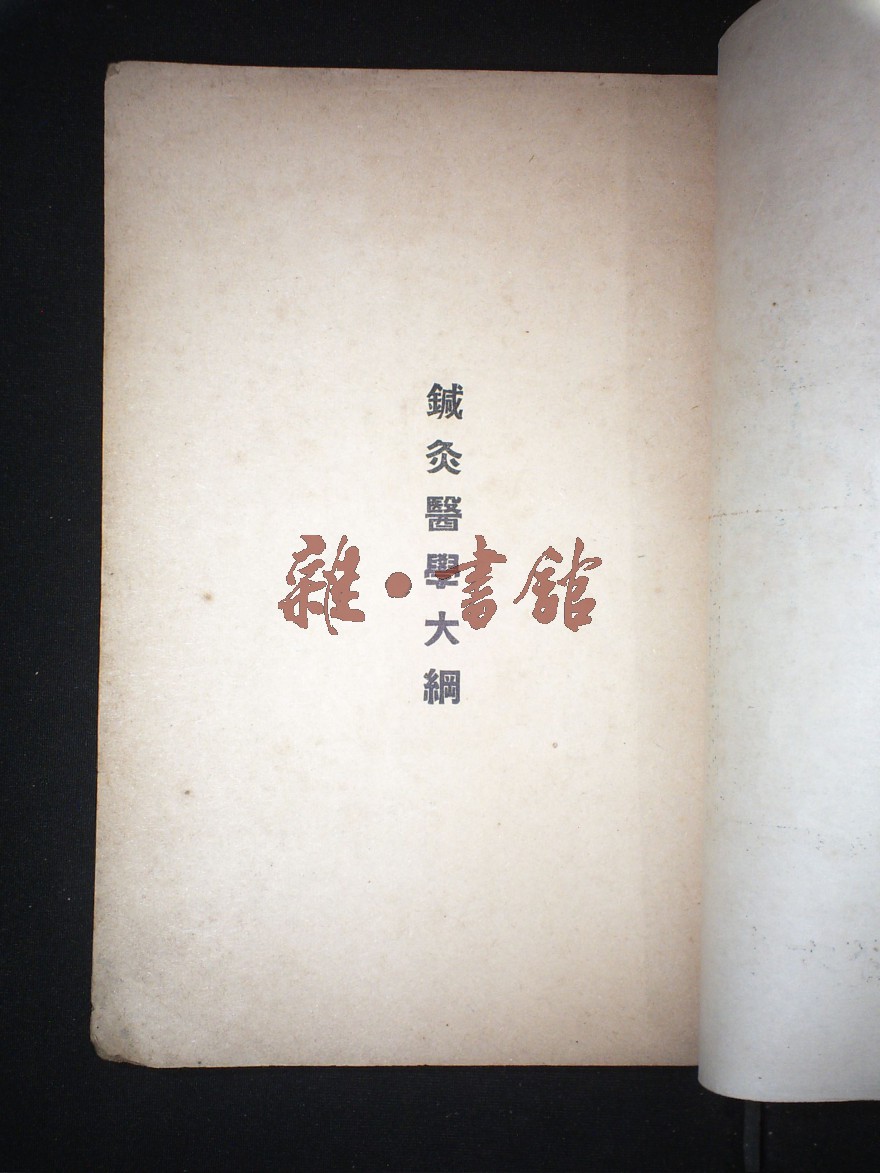 鍼灸醫學大綱
雜·書館